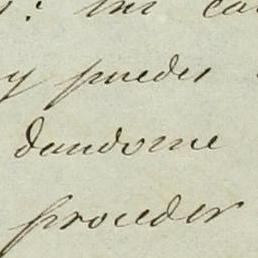 mi
y puedes
dandome
proceder